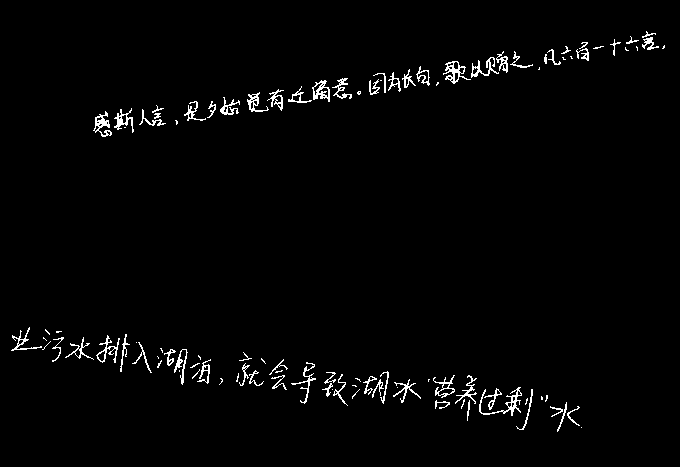 感斯人言，是夕始觉有迁谪意。因为长句，歌以赠之，凡六百一十六言，
业污水排入湖泊，就会导致湖水“营养过剩”水